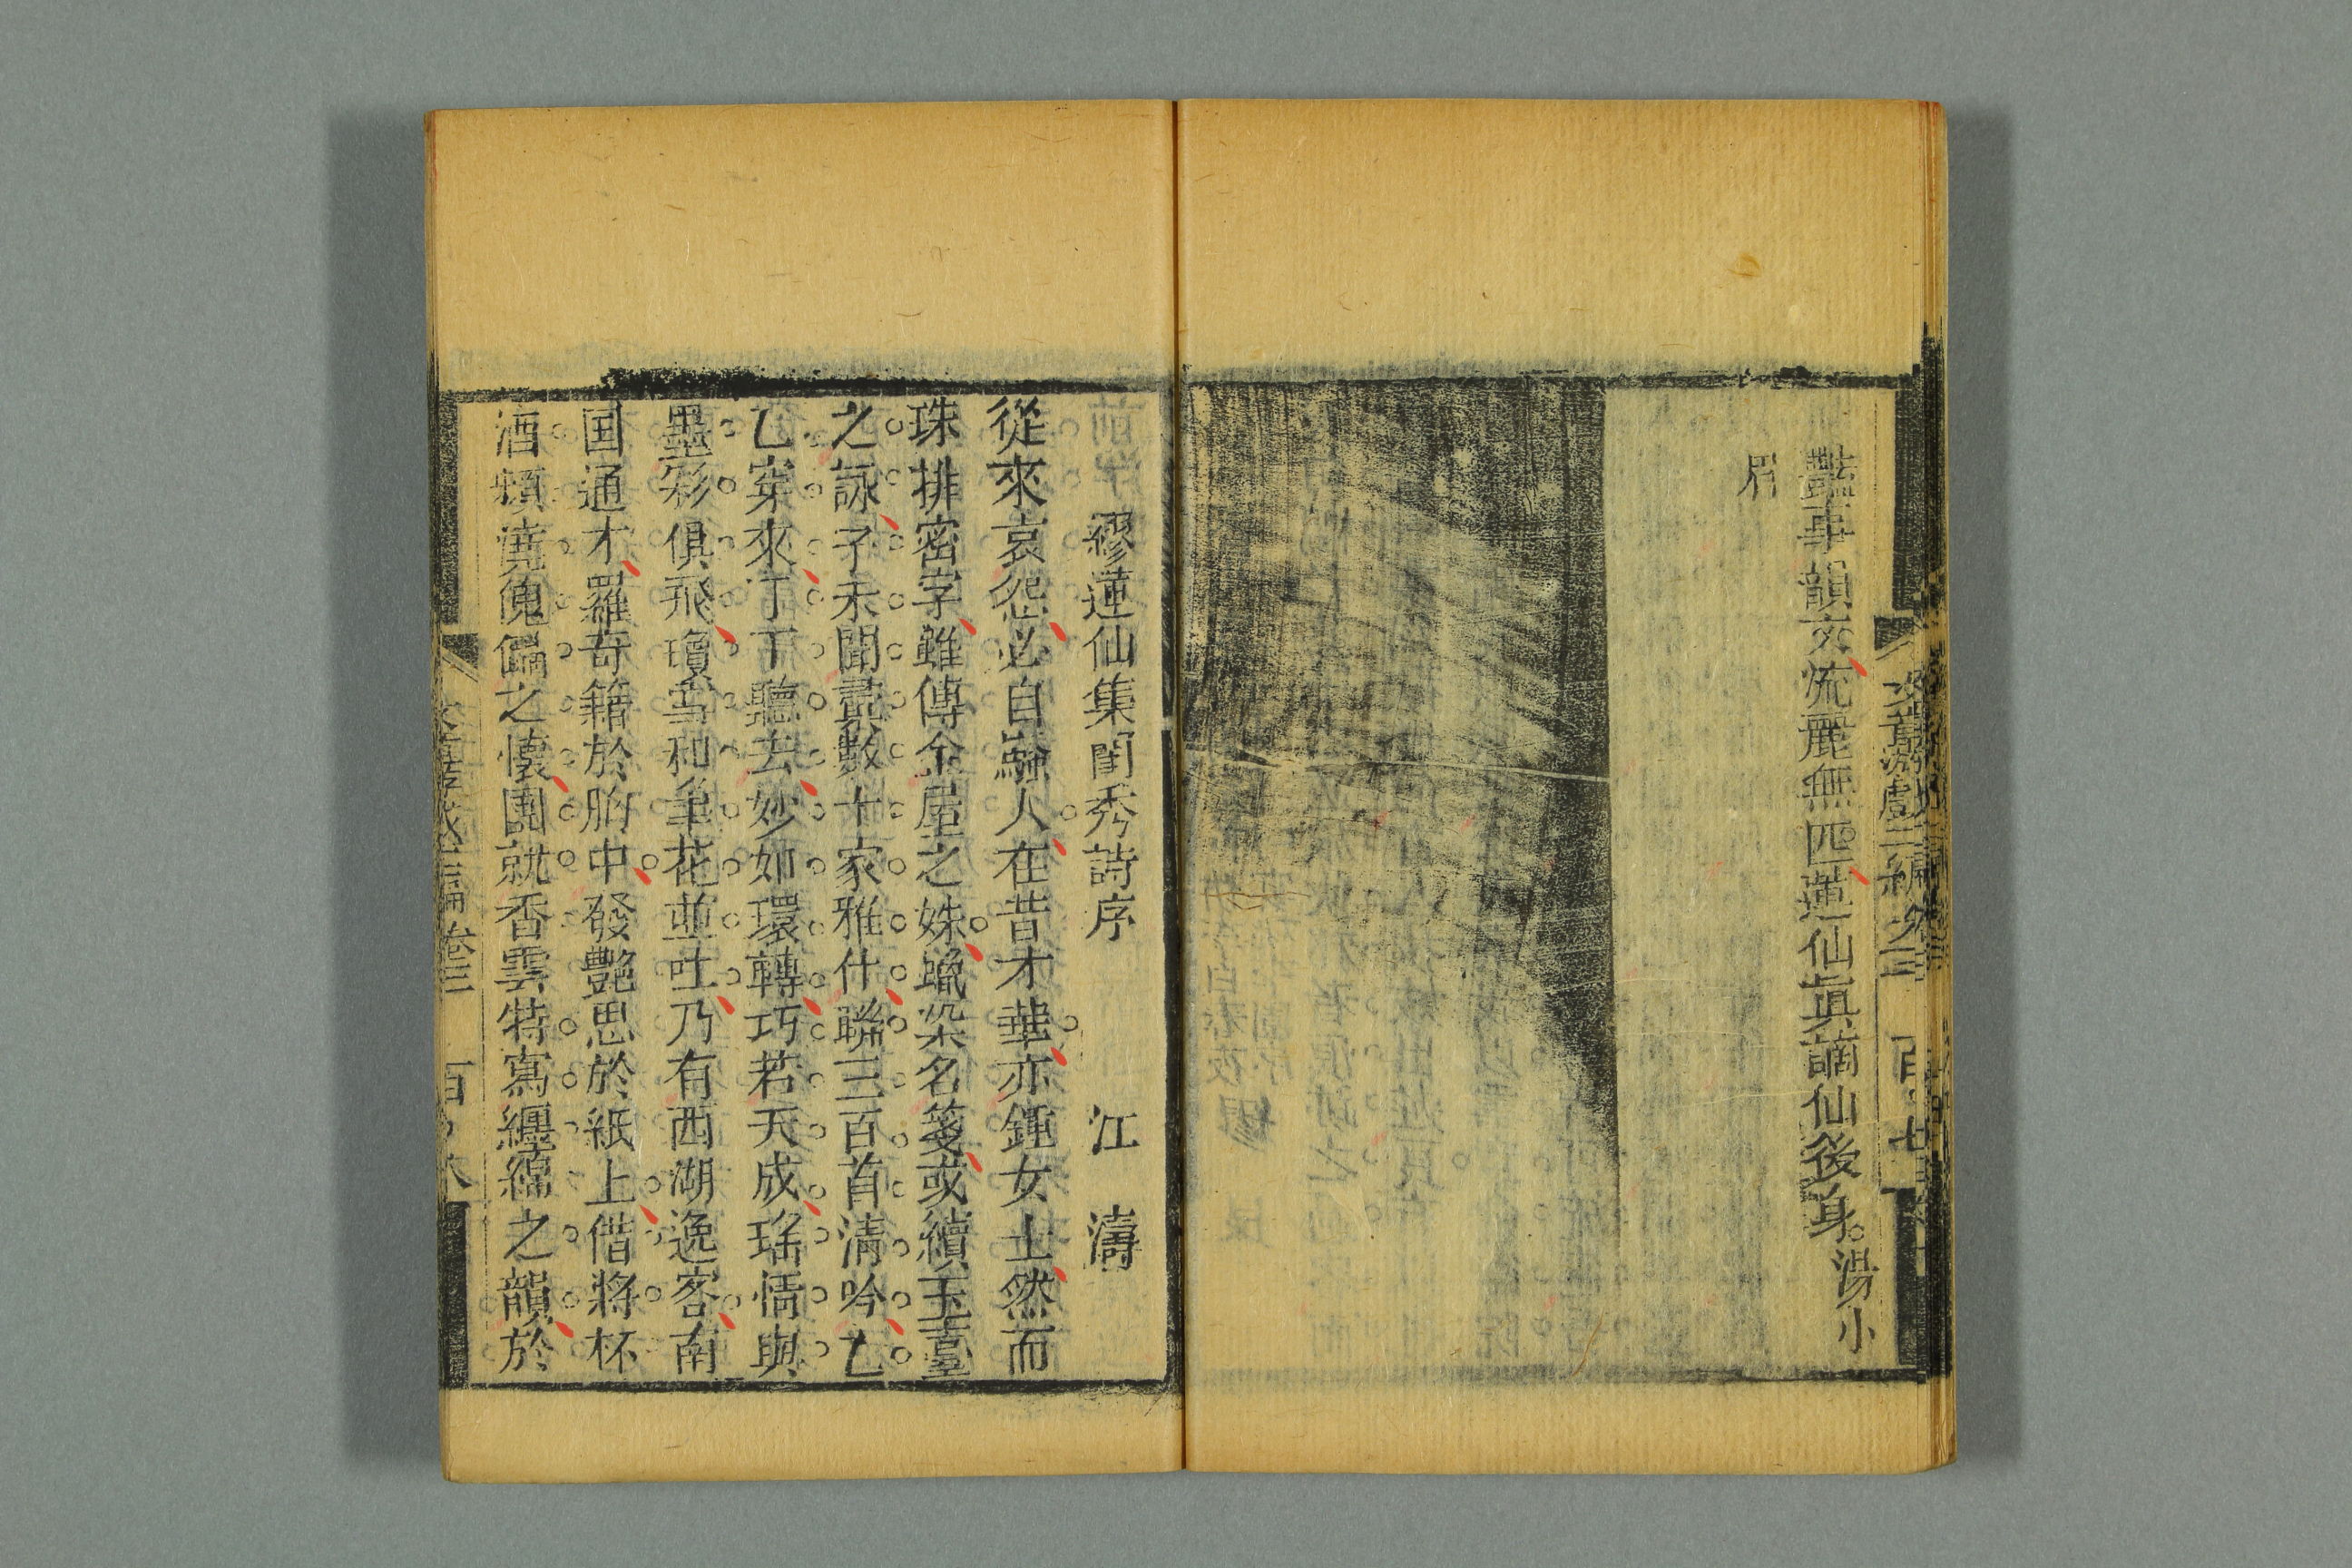 豔事韻文流麗無匹蓮仙眞謫仙後身湯小
眉
繆蓮仙集閨秀詩序 江濤
從來哀怨必自騷人在昔才華亦鍾女士然而
珠排密字雖傳金屋之姝蠟染名箋或續玉臺
之詠予未聞裒數十家雅什聯三百首清吟乙
乙穿來丁丁聽去妙如環轉巧若天成瑤情與
墨彩俱飛瓊當和筆花並吐乃有西湖逸客南
国通才羅奇籍於胸中發艷思於紙上偕將杯
酒頻澆傀儡之懷團就香雲特寫纏綿之韻於